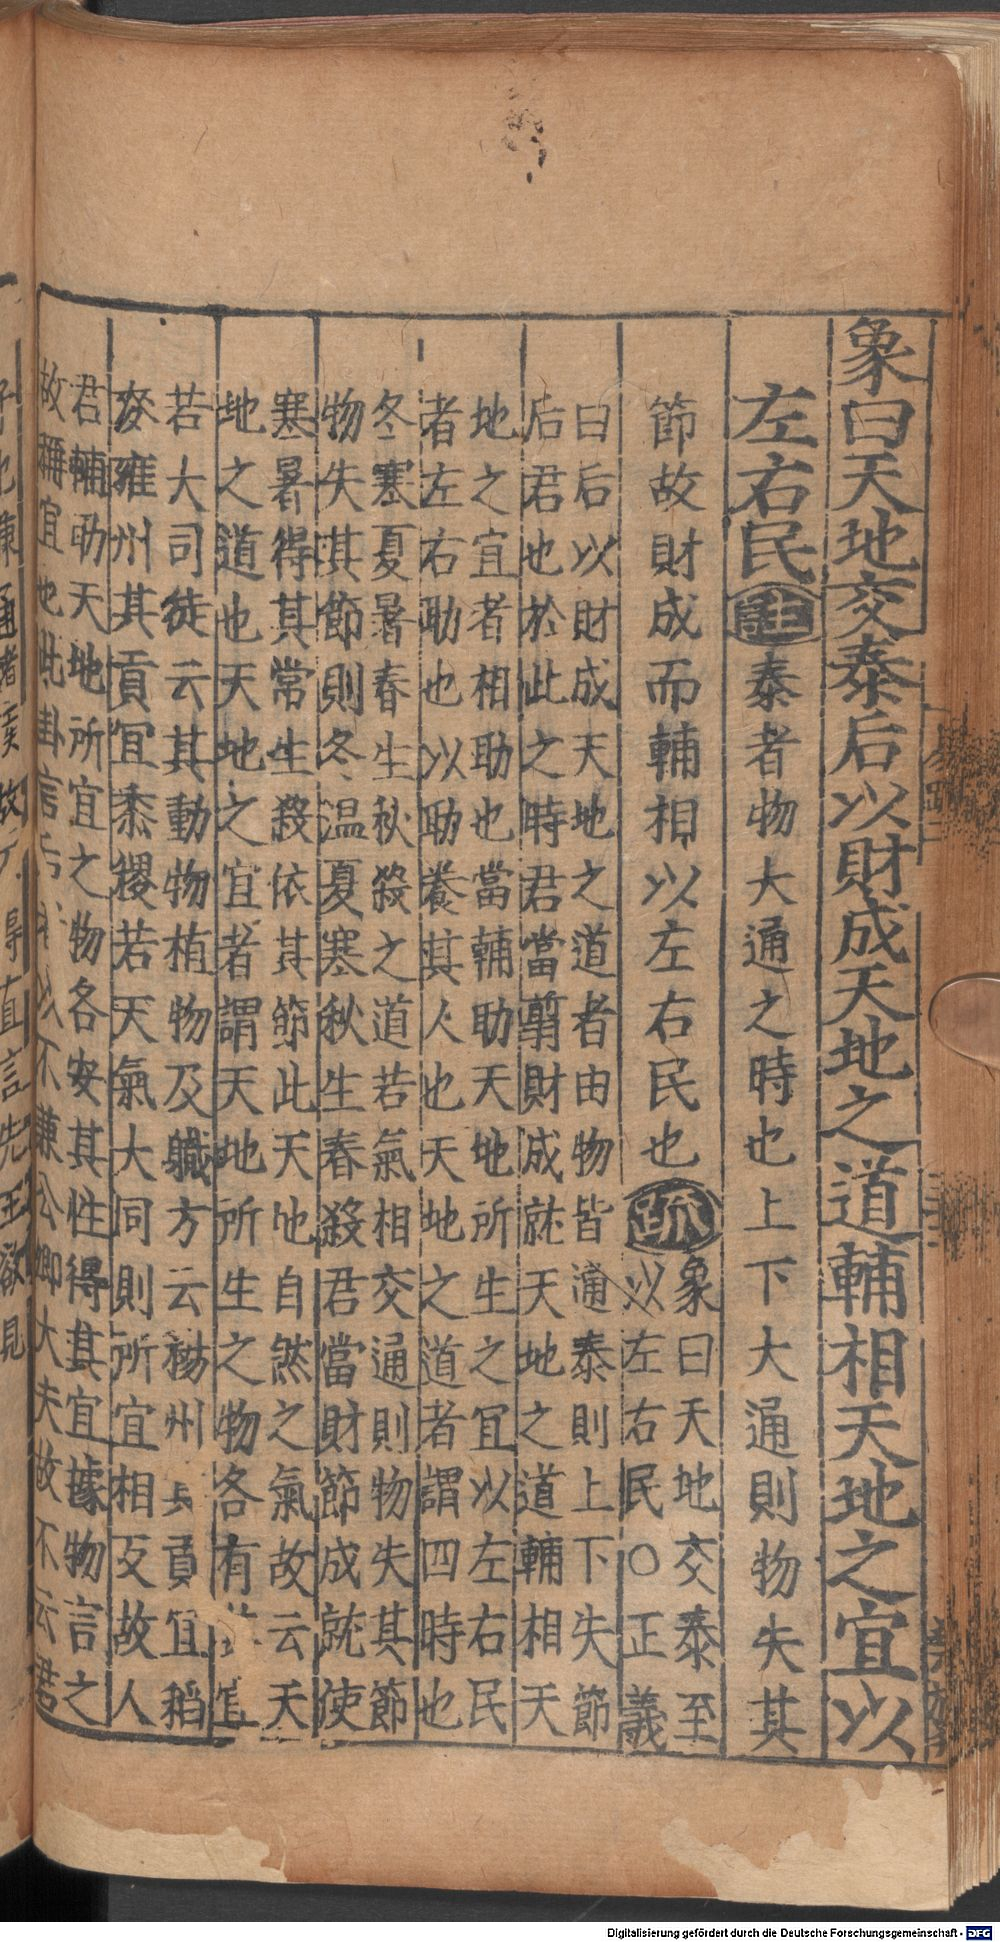 象曰天地交泰后以財成天地之道輔相天地之宜以
左右民註泰者物大通之時也上下大通則物失其
節故財成而輔相以左右民也疏象曰天地交泰至
以左右民○正義
曰后以財成天地之道者由物皆通泰則上下失節
后君也於此之時君當翦財成就天地之道輔相天
地之宜者相助也當輔助天地所生之宜以左右民
者左右助也以助養其人也天地之道者謂四時也
冬寒夏暑春生秋殺之道若氣相交通則物失其節
物失其節則冬温夏寒秋生春殺君當財節成就使
寒暑得其常生殺依其節此天地自然之氣故云天
地之道也天地之宜者謂天地所生之物各有
若大司徒云其動物植物及職方云楊州貢宜稻
麥雍州其貢宜黍稷若天氣大同則所宜相反故人
君輔助天地所宜之物各安其性得其宜據物言之
故稱宜也此卦言后以不兼公卿大夫故不云君
子也兼通者故直言先王欲見
Digitalisierung gefördert durch die Deutsche Forschungsgemeinschaft - DFG